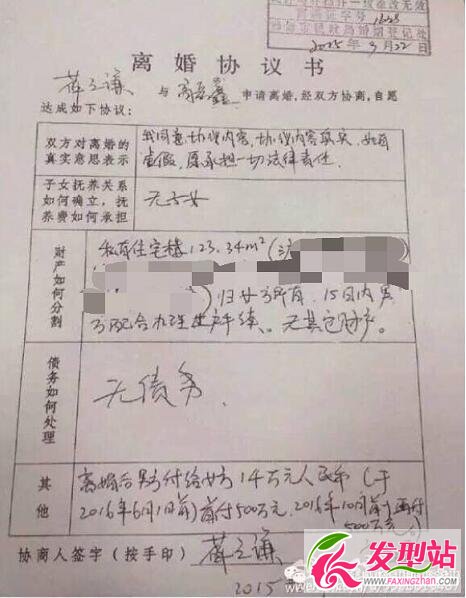 2015 年 9 月 22 日
离婚协议书
薛之谦 与 高磊鑫 申请离婚,经双方协商,自愿
达成如下协议:
双方对离婚的
真实意思表示
我同意协议内容,协议内容真实,如有
虚假,愿承担一切法律责任
子女抚养关系
如何确立,抚
养费如何承担
无子女
财产如何分割
私有住宅楼 123.34m² (沪
) 归女方所有,15日内男
方配合办理过户手续。无其它财产。
债务如何处理
无债务.
其他
离婚后男方付给女方1千万元人民币 (于
2016年6月1日前) 首付500万元,2016年10月前再付
500万元
协商人签字(按手印) 薛之谦
2015
发型站
www.faxingzhan.com